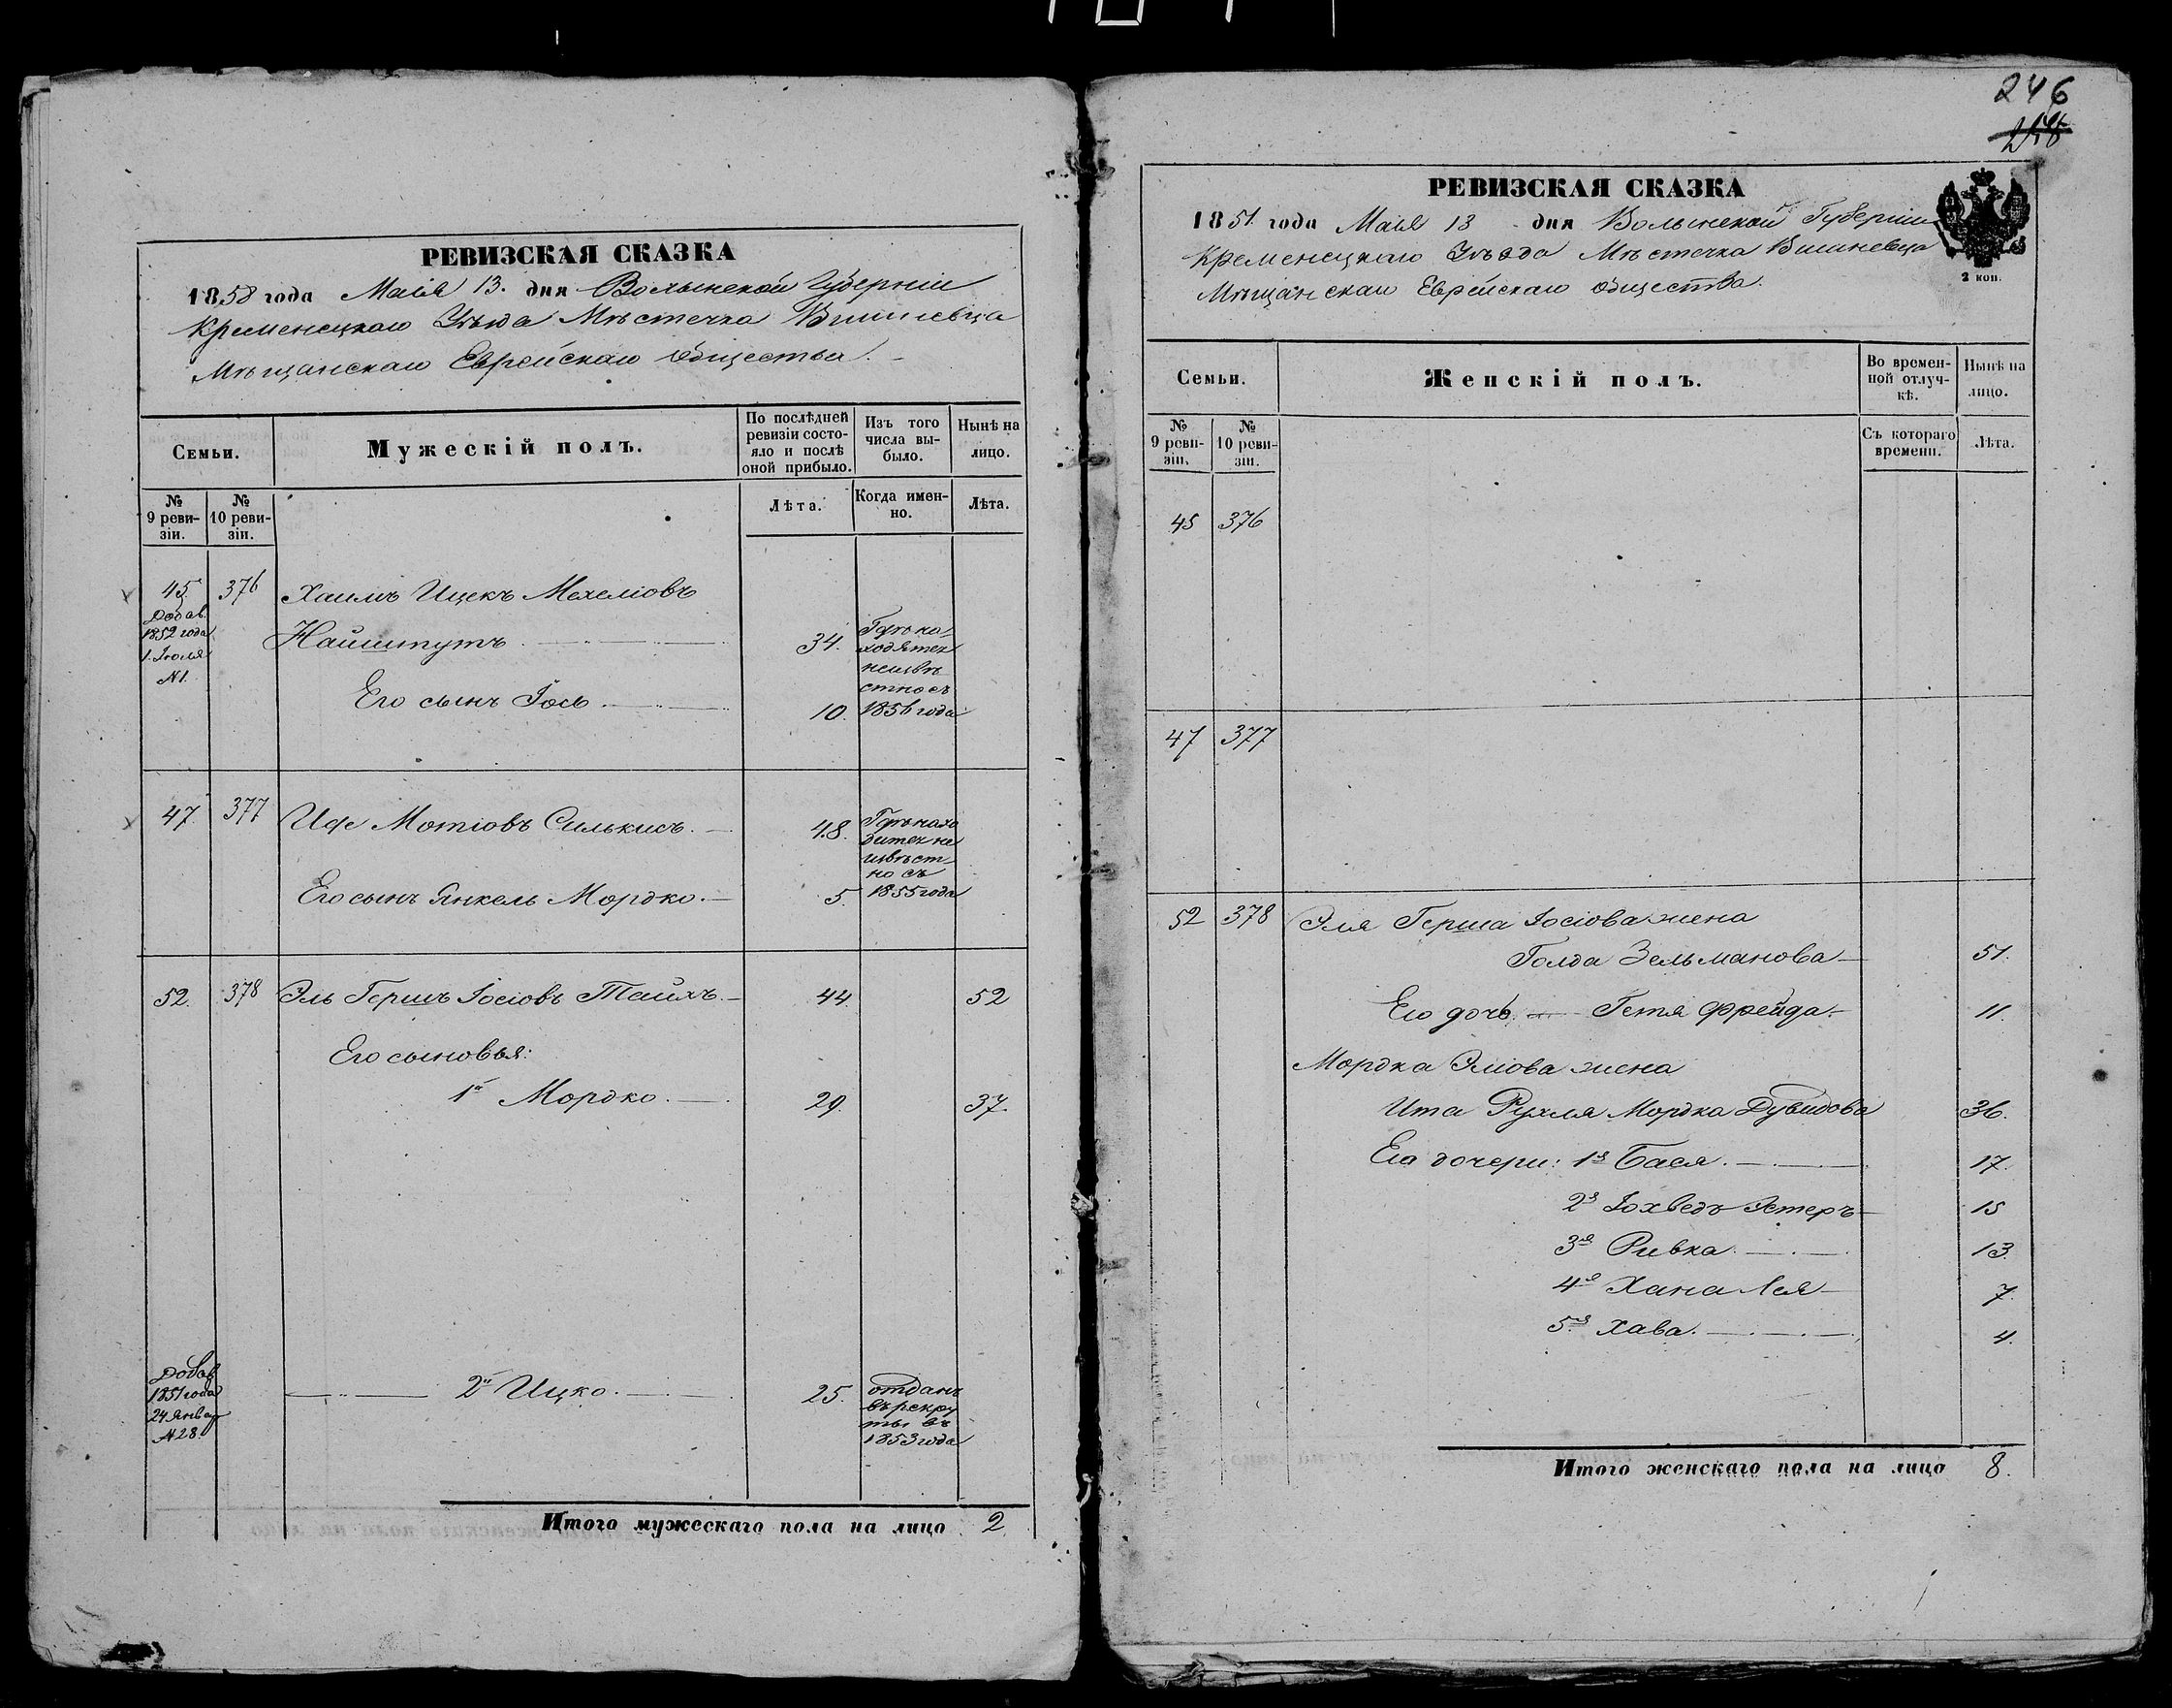 РЕВИЗСКАЯ СКАЗКА
1858 года Маія 13. дня Волынской Губерніи
Кременецкаго Уѣзда Мѣстечка Вишневца
Мѣщанскаго Еврейскаго Общества.
Семьи.
Мужескій полъ.
По послѣдней ревизіи состояло и послѣ оной прибыло.
Изъ того числа выбыло.
Нынѣ на лицо.
№ 9 ревизіи.
№ 10 ревизіи.
Лѣта.
Когда именно.
Лѣта.
45 376 Хаимъ Ицекъ Мехеліовъ
Добав. 1852 года 1. Іюля №1.
Найштутъ 34. Гдѣ находятся неизвѣстно съ 1856 года
Его сынъ Іось 10.
47 377 Иде Мотіовъ Силькисъ. 48. Гдѣ находится неизвѣстно съ 1855 года
Его сынъ Янкель Мордко. 5.
52. 378 Эль Гершъ Іосіовъ Тайхъ. 44. 52
Его сыновья:
1й Мордко. 29. 37.
Добав 1851 года 24 Январ №28.
2й Ицко. 25. отданъ въ рекруты въ 1853 года
Итого мужескаго пола на лицо 2
246
РЕВИЗСКАЯ СКАЗКА
1851. года Маія 13 дня Волынской Губерніи
Кременецкаго Уѣзда Мѣстечка Вишневца
Мѣщанскаго Еврейскаго общества.
2 коп.
Семьи.
Женскій полъ.
Во временной отлучкѣ.
Нынѣ на лицо.
№ 9 ревизіи.
№ 10 ревизіи.
Съ котораго времени.
Лѣта.
45 376
47 377
52 378 Эля Герша Іосіова жена
Голда Зельманова 51.
Его дочь Гетя Фрейда. 11.
Мордка Эліова жена
Ита Рухля Мордка Дувидова 36.
Его дочери: 1я Бася. 17.
2я Іохведъ Эстеръ 15
3я Ривка. 13.
4я Хана Лея 7.
5я Хава. 4.
Итого женскаго пола на лицо 8.